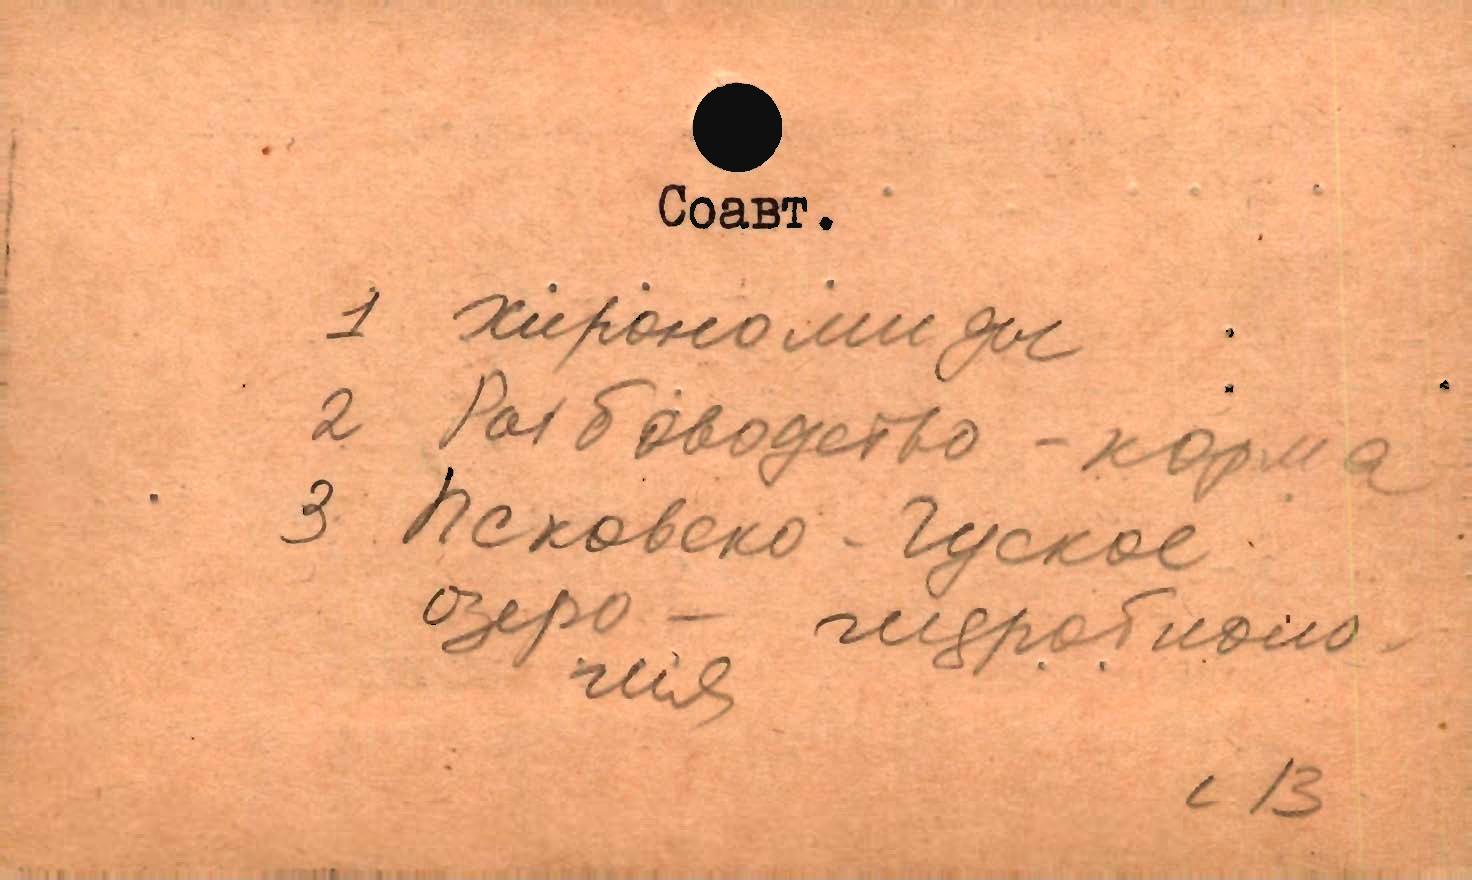 Соавт.
1 хирономиды
2 Рыбоводство - корма
3 Псковско - Чуское
озеро - гидробиоло-
гия
с 13